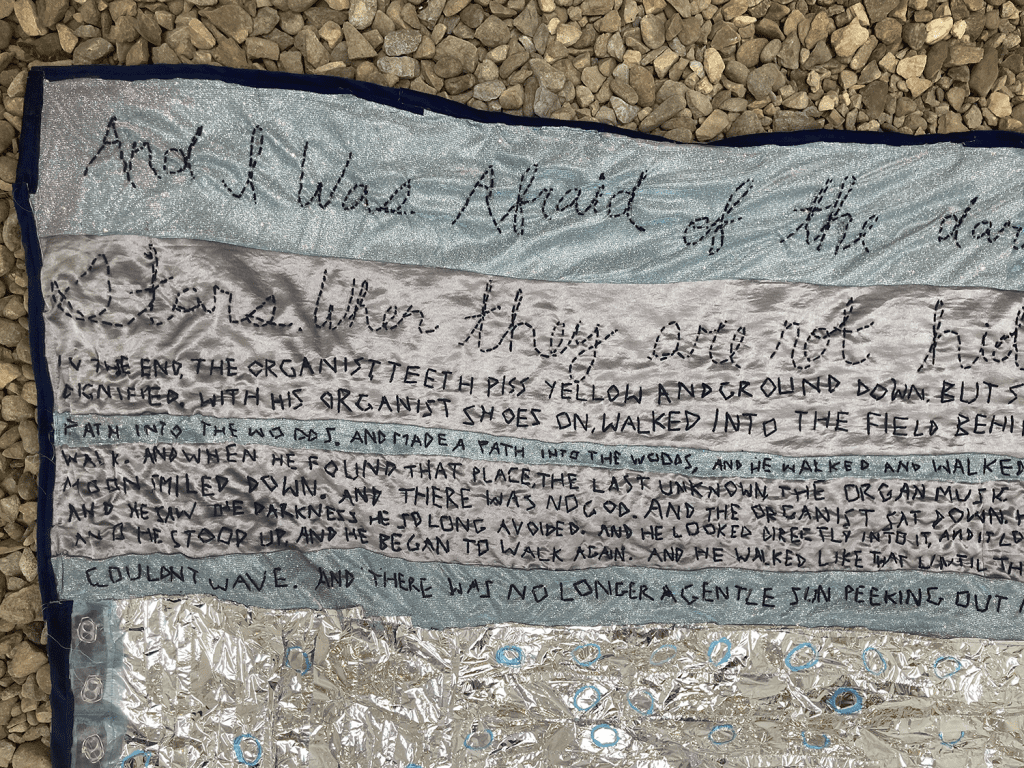 And I Was Afraid of the dar
Stars. When they are not hid
IN THE END, THE ORGANIST TEETH PISS YELLOW AND GROUND DOWN. BUT S
DIGNIFIED. WITH HIS ORGANIST SHOES ON, WALKED INTO THE FIELD BEHI
PATH INTO THE WOODS, AND MADE A PATH INTO THE WOODS, AND HE WALKED AND WALKED
WALK. AND WHEN HE FOUND THAT PLACE, THE LAST UNKNOWN, THE ORGAN MUSIC
MOON SMILED DOWN. AND THERE WAS NO GOD. AND THE ORGANIST SAT DOWN.
AND HE SAW THE DARKNESS HE SO LONG AVOIDED. AND HE LOOKED DIRECTLY INTO IT, AND IT LO
AND HE STOOD UP. AND HE BEGAN TO WALK AGAIN. AND HE WALKED LIKE THAT UNTIL TH
COULDNT WAVE. AND THERE WAS NO LONGER A GENTLE SUN PEEKING OUT